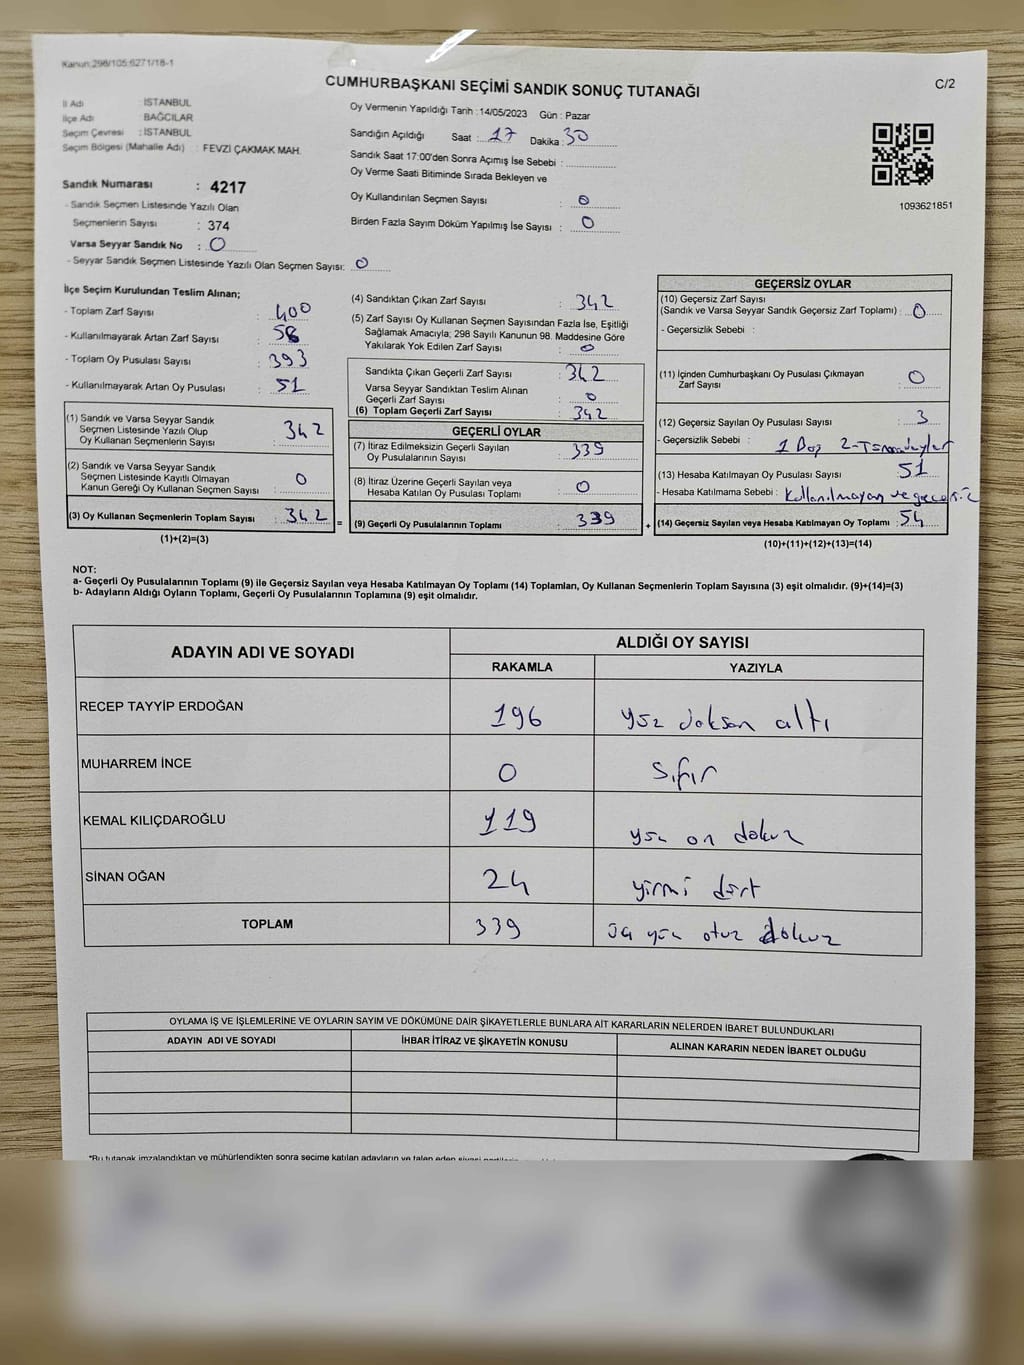 Kanun:298/105:6271/18-1
CUMHURBAŞKANI SEÇİMİ SANDIK SONUÇ TUTANAĞI
C/2
İl Adı : İSTANBUL
İlçe Adı : BAĞCILAR
Seçim Çevresi : İSTANBUL
Seçim Bölgesi (Mahalle Adı) : FEVZİ ÇAKMAK MAH.
Oy Vermenin Yapıldığı Tarih :14/05/2023 Gün : Pazar
Sandığın Açıldığı Saat : 17 Dakika : 30
Sandık Saat 17:00'den Sonra Açımış İse Sebebi :
Oy Verme Saati Bitiminde Sırada Bekleyen ve
Oy Kullandırılan Seçmen Sayısı : 0
Birden Fazla Sayım Döküm Yapılmış İse Sayısı : 0
1093621851
Sandık Numarası : 4217
- Sandık Seçmen Listesinde Yazılı Olan
Seçmenlerin Sayısı : 374
Varsa Seyyar Sandık No : 0
- Seyyar Sandık Seçmen Listesinde Yazılı Olan Seçmen Sayısı: 0
İlçe Seçim Kurulundan Teslim Alınan;
- Toplam Zarf Sayısı : 400
- Kullanılmayarak Artan Zarf Sayısı : 58
- Toplam Oy Pusulası Sayısı : 393
- Kullanılmayarak Artan Oy Pusulası : 51
(1) Sandık ve Varsa Seyyar Sandık
Seçmen Listesinde Yazılı Olup
Oy Kullanan Seçmenlerin Sayısı : 342
(2) Sandık ve Varsa Seyyar Sandık
Seçmen Listesinde Kayıtlı Olmayan
Kanun Gereği Oy Kullanan Seçmen Sayısı : 0
(3) Oy Kullanan Seçmenlerin Toplam Sayısı : 342 =
(1)+(2)=(3)
(4) Sandıktan Çıkan Zarf Sayısı : 342
(5) Zarf Sayısı Oy Kullanan Seçmen Sayısından Fazla İse, Eşitliği
Sağlamak Amacıyla; 298 Sayılı Kanunun 98. Maddesine Göre
Yakılarak Yok Edilen Zarf Sayısı : 0
Sandıkta Çıkan Geçerli Zarf Sayısı : 342
Varsa Seyyar Sandıktan Teslim Alınan
Geçerli Zarf Sayısı : 0
(6) Toplam Geçerli Zarf Sayısı : 342
GEÇERLİ OYLAR
(7) İtiraz Edilmeksizin Geçerli Sayılan
Oy Pusulalarının Sayısı : 339
(8) İtiraz Üzerine Geçerli Sayılan veya
Hesaba Katılan Oy Pusulası Toplamı : 0
(9) Geçerli Oy Pusulalarının Toplamı : 339 +
GEÇERSİZ OYLAR
(10) Geçersiz Zarf Sayısı
(Sandık ve Varsa Seyyar Sandık Geçersiz Zarf Toplamı) : 0
- Geçersizlik Sebebi :
(11) İçinden Cumhurbaşkanı Oy Pusulası Çıkmayan
Zarf Sayısı : 0
(12) Geçersiz Sayılan Oy Pusulası Sayısı : 3
- Geçersizlik Sebebi : 1 Boş 2-
(13) Hesaba Katılmayan Oy Pusulası Sayısı : 51
- Hesaba Katılmama Sebebi : Kullanılmayan ve geçersiz
(14) Geçersiz Sayılan veya Hesaba Katılmayan Oy Toplamı : 54
(10)+(11)+(12)+(13)=(14)
NOT:
a- Geçerli Oy Pusulalarının Toplamı (9) ile Geçersiz Sayılan veya Hesaba Katılmayan Oy Toplamı (14) Toplamları, Oy Kullanan Seçmenlerin Toplam Sayısına (3) eşit olmalıdır. (9)+(14)=(3)
b- Adayların Aldığı Oyların Toplamı, Geçerli Oy Pusulalarının Toplamına (9) eşit olmalıdır.
ADAYIN ADI VE SOYADI
ALDIĞI OY SAYISI
RAKAMLA YAZIYLA
RECEP TAYYİP ERDOĞAN 196 yüz doksan altı
MUHARREM İNCE 0 Sıfır
KEMAL KILIÇDAROĞLU 119 yüz on dokuz
SİNAN OĞAN 24 yirmi dört
TOPLAM 339 üç yüz otuz dokuz
OYLAMA İŞ VE İŞLEMLERİNE VE OYLARIN SAYIM VE DÖKÜMÜNE DAİR ŞİKAYETLERLE BUNLARA AİT KARARLARIN NELERDEN İBARET BULUNDUKLARI
ADAYIN ADI VE SOYADI İHBAR İTİRAZ VE ŞİKAYETİN KONUSU ALINAN KARARIN NEDEN İBARET OLDUĞU
*Bu tutanak imzalandıktan ve mühürlendikten sonra seçime katılan adayların ve talep eden